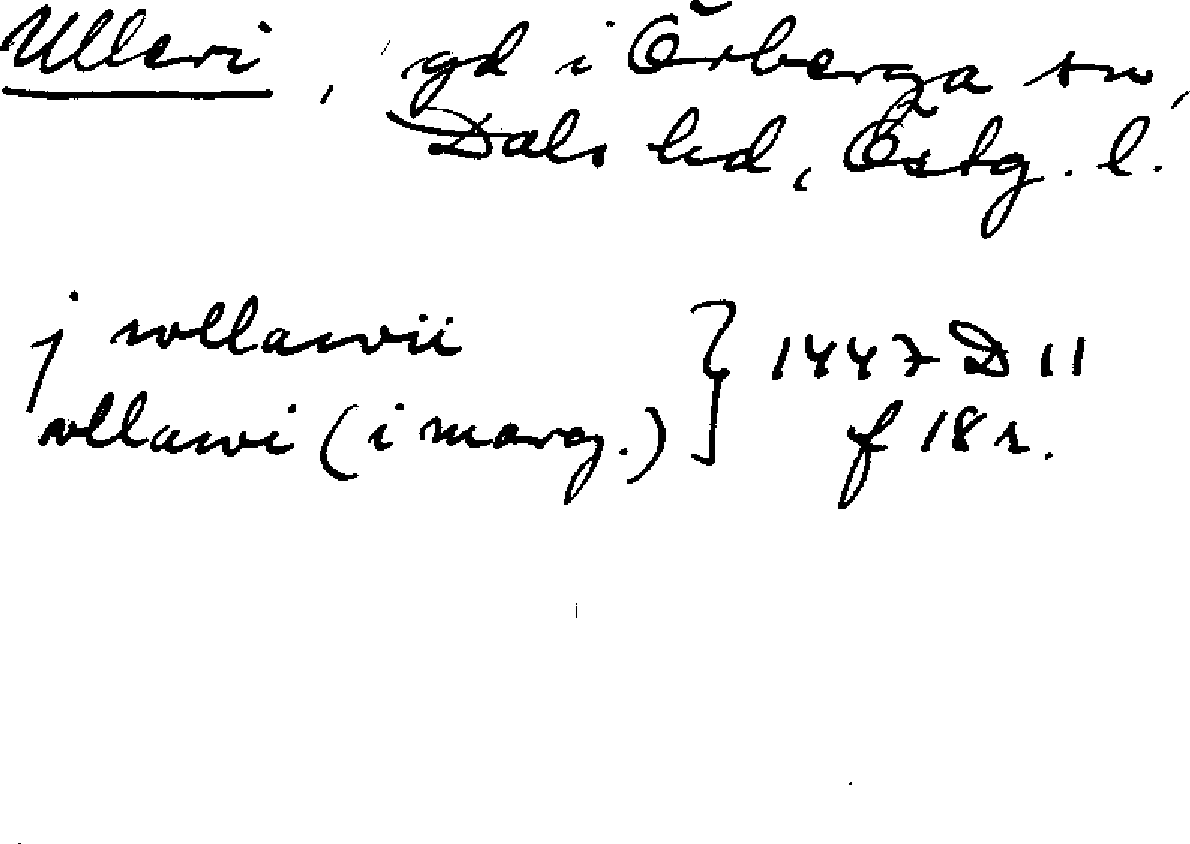 Ullevi, gd i Örberga sn,
Dals hd, Östg. l.
j wllawii } 1447 D 11
wllawi (i marg.) f 18 r.